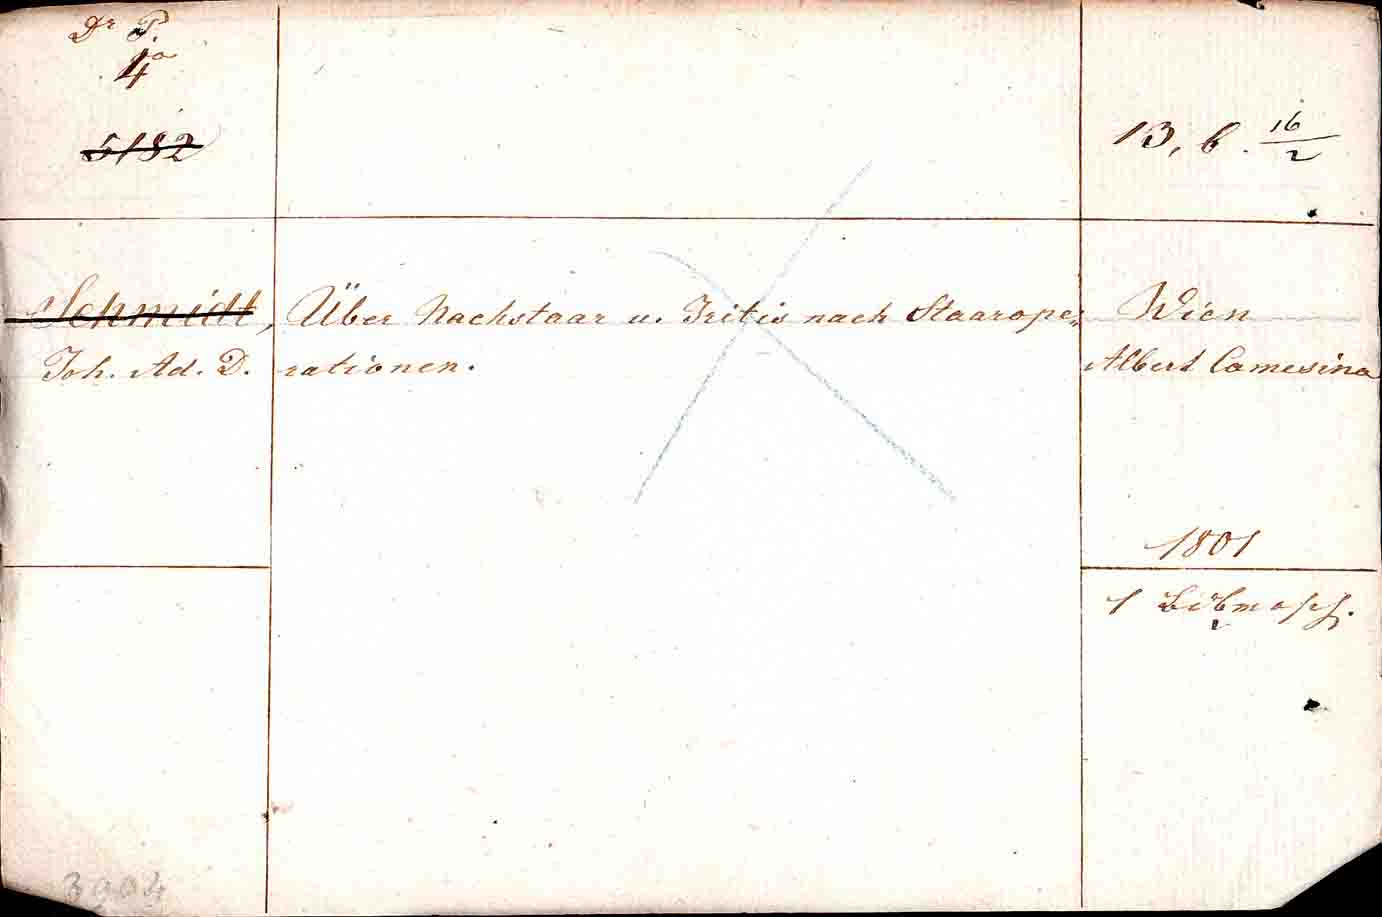 Dr P.
4o
5182
13, b. 16/2
Schmidt,
Joh. Ad. D.
Über Nachstaar u. Iritis nach Staarope„
rationen.
Wien
Albert Camesina
1801
1
3904